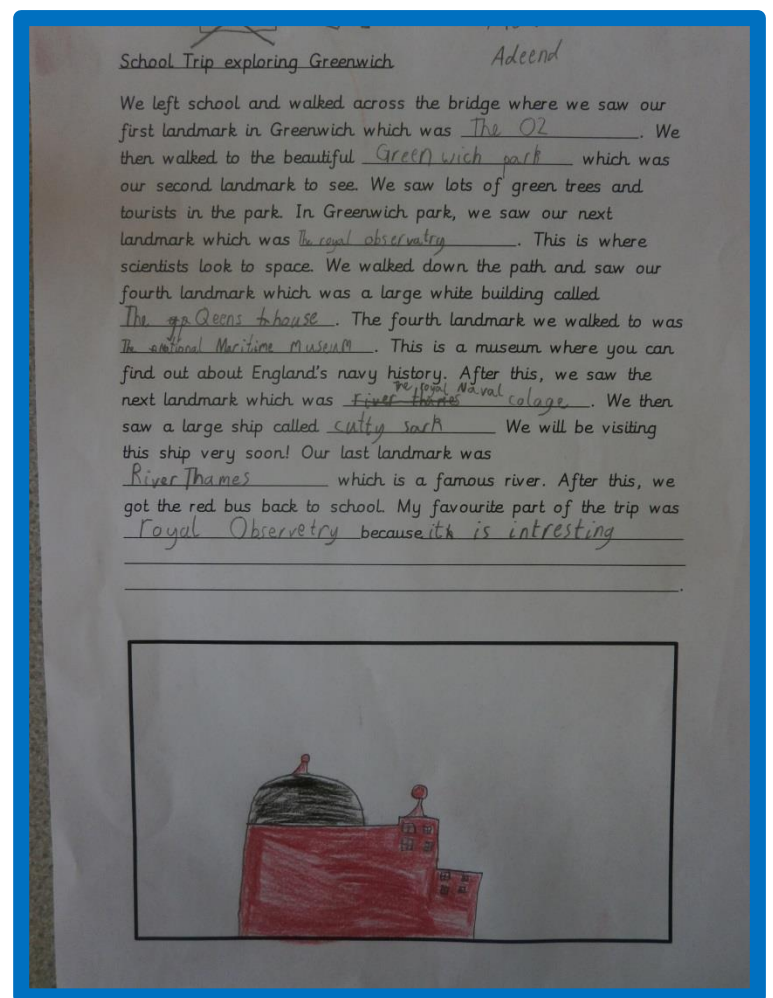 Adeend
School Trip exploring Greenwich
We left school and walked across the bridge where we saw our
first landmark in Greenwich which was The O2. We
then walked to the beautiful Greenwich park which was
our second landmark to see. We saw lots of green trees and
tourists in the park. In Greenwich park, we saw our next
landmark which was The royal observatry. This is where
scientists look to space. We walked down the path and saw our
fourth landmark which was a large white building called
The Qeens house. The fourth landmark we walked to was
The national Maritime museum. This is a museum where you can
find out about England's navy history. After this, we saw the
next landmark which was The royal Naval colage. We then
saw a large ship called cutty sark We will be visiting
this ship very soon! Our last landmark was
River Thames which is a famous river. After this, we
got the red bus back to school. My favourite part of the trip was
royal Observetry because it is intresting
.